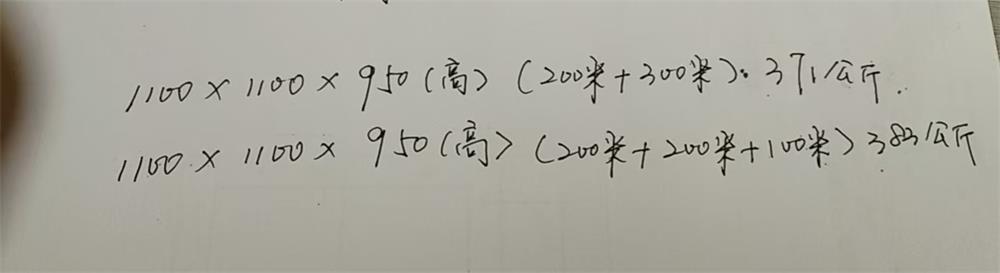 1100 × 1100 × 950(高) (200米+300米). 371公斤.
1100 × 1100 × 950(高) (200米+200米+100米) 383公斤